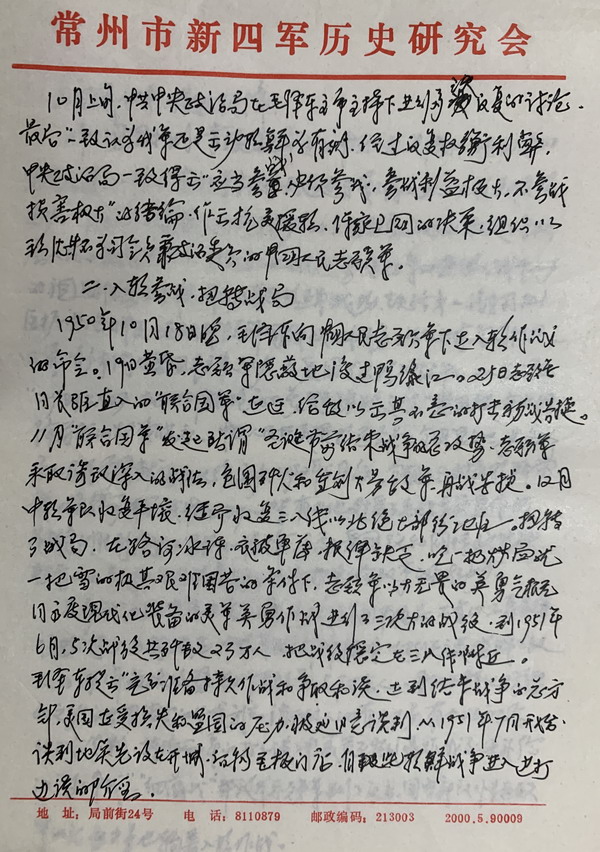 常州市新四军历史研究会
10月上旬，中共中央政治局在毛泽东主席主持下进行了反复的讨论，
最后一致认为我军还是出动到朝鲜为有利，经过反复权衡利弊，
中央政治局一致得出"应当参战，必须参战，参战利益极大，不参战
损害极大"的结论，作出抗美援朝，保家卫国的决策，组织以
彭德怀为司令员兼政治委员的中国人民志愿军。
二、入朝参战，扭转战局
1950年10月18日晚，毛泽东向中国人民志愿军下达入朝作战
的命令。19日黄昏，志愿军隐蔽地渡过鸭绿江。25日志愿军
向长驱直入的"联合国军"给敌以出其不意的打击初战告捷。
11月"联合国军"发起所谓"圣诞节前结束战争的总攻势"，志愿军
采取诱敌深入的战法，包围歼灭和重创大量敌军，再战告捷。12月
中朝军队收复平壤，继而收复三八线以北绝大部份地区。扭转
了战局，在路河冰冻、衣被单薄、粮弹缺乏，吃一把炒面咽
一把雪的极其艰难困苦的条件下，志愿军以大无畏的英勇气概
同高度现代化装备的美军英勇作战进行了三次大的战役，到1951年
6月，5次战役共歼敌23万人，把战线稳定在三八线附近。
毛泽东提出"充分准备持久作战和争取和谈，达到结束战争的总方
针，美国在受损失和盟国的压力，被迫同意谈判，从1951年7月开始，
谈判地点先设在开城，后移至板门店，自此朝鲜战争进入边打
边谈的阶段。
地 址：局前街24号 电 话：8110879 邮政编码：213003 2000.5.90009